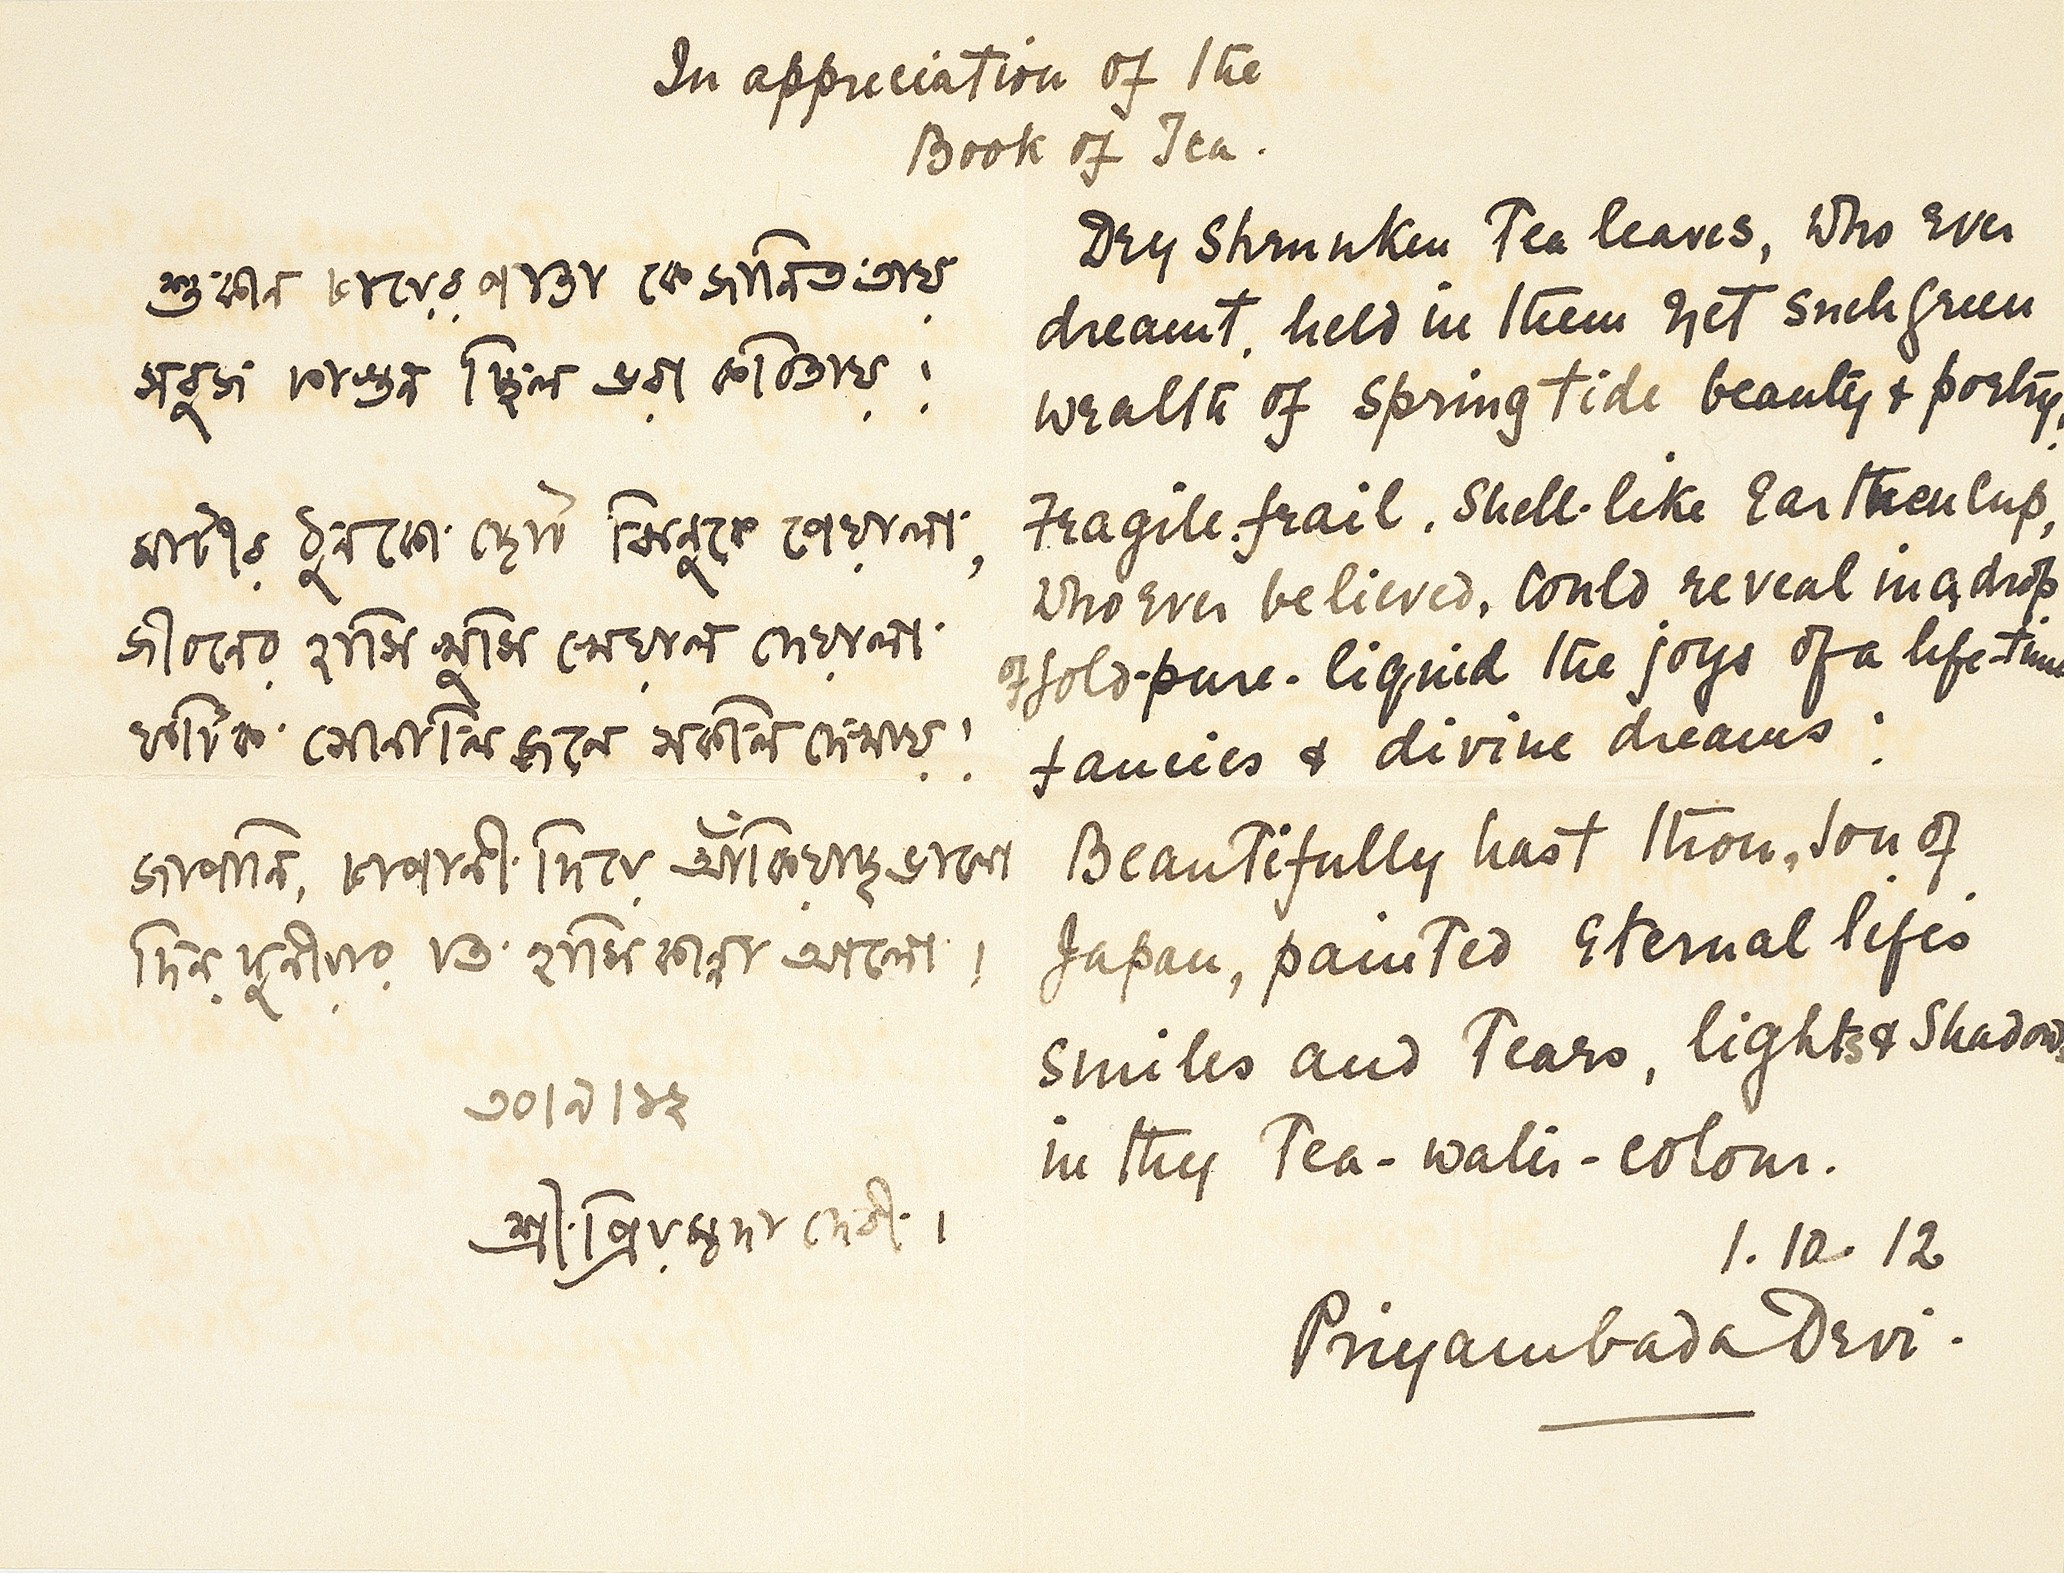 In appreciation of the
Book of Tea.
শুকান চায়ের পাতা কে জানিত তায়
সবুজ ফাগুন ছিল ভরা কবিতায়!
মাটীর ঠুনকো ছোট ঝিনুকে পেয়ালা,
জীবনের হাসি খুসি খেয়াল দেয়ালা
ফটিক সোনালি জলে সকলি দেখায়!
জাপানি, চাপানী দিয়ে আঁকিয়াছ ভালো
দিন দুনীয়ার যত হাসি কান্না আলো।
৩০।৯।১২
শ্রী প্রিয়ম্বদা দেবী।
Dry shrunken Tea leaves, who ever
dreamt, held in them yet such green
wealth of spring tide beauty & poetry!
Fragile frail, shell-like Earthen cup,
Who ever believed, could reveal in a drop
of gold-pure-liquid the joys of a life-time
fancies & divine dreams!
Beautifully hast thou, Son of
Japan, painted Eternal life's
smiles and Tears, lights & Shadows
in thy Tea-water-colour.
1. 10. 12
Priyambada Devi.